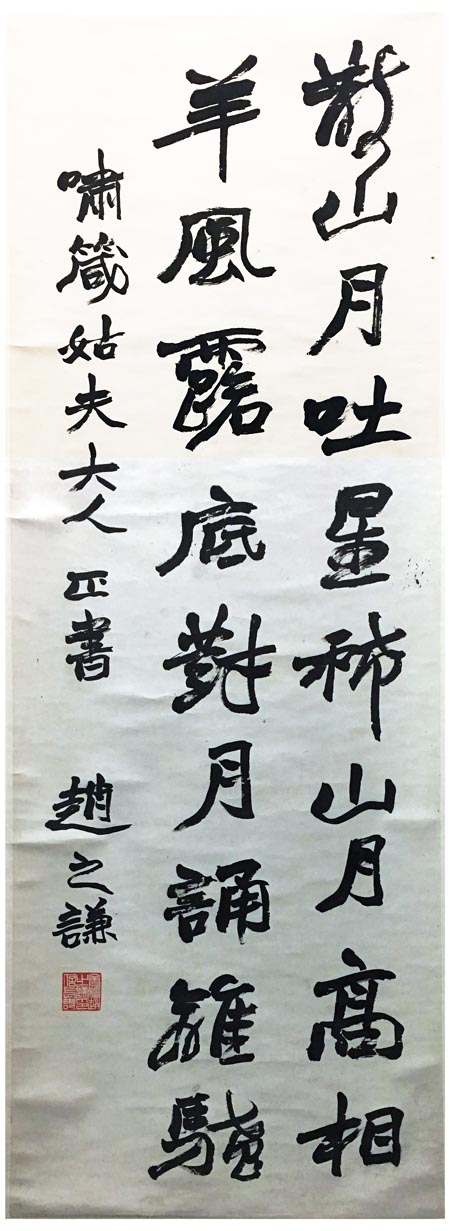 山月吐星稀山月高相
羊風露底對月誦離騷
嘯箴姑夫大人正書 趙之謙